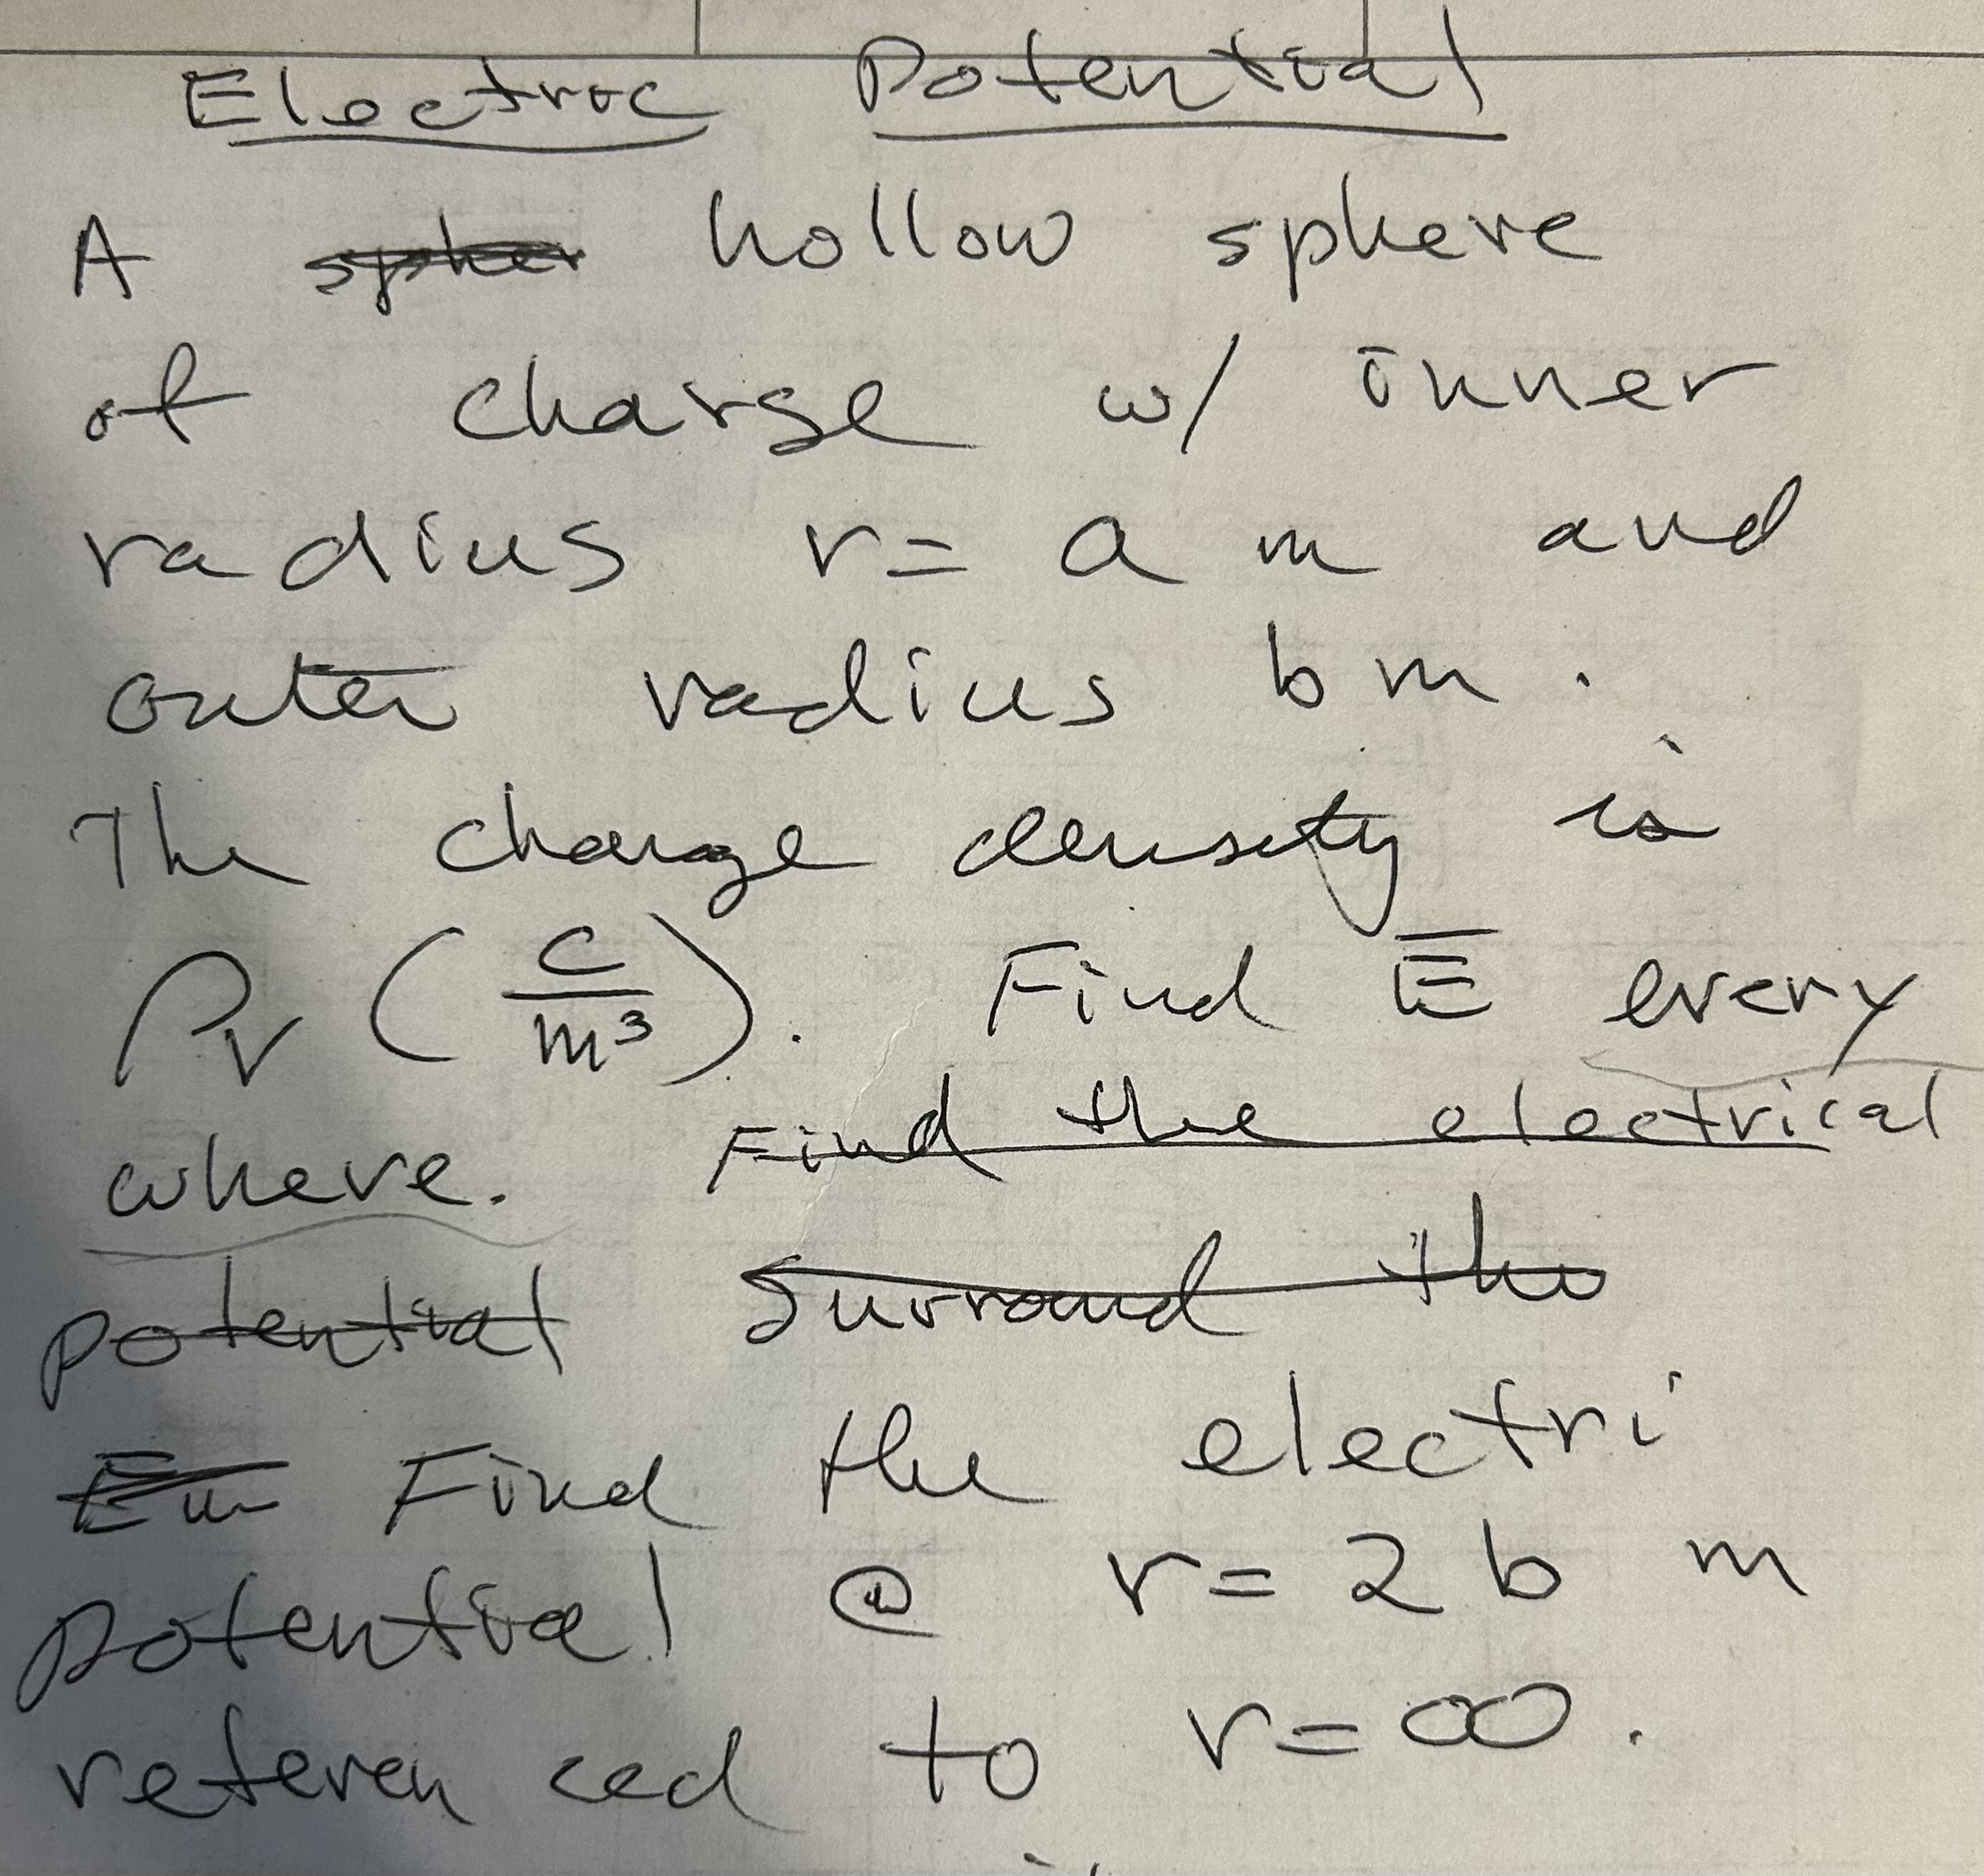 Electric Potential
A spher hollow sphere
of charge w/ inner
radius r = a m and
outer radius b m.
The charge density is
ρv (C/m³). Find E̅ every
where. Find the electrical
potential surround the
Find the electri
potential @ r = 2 b m
referen ced to r = ∞.